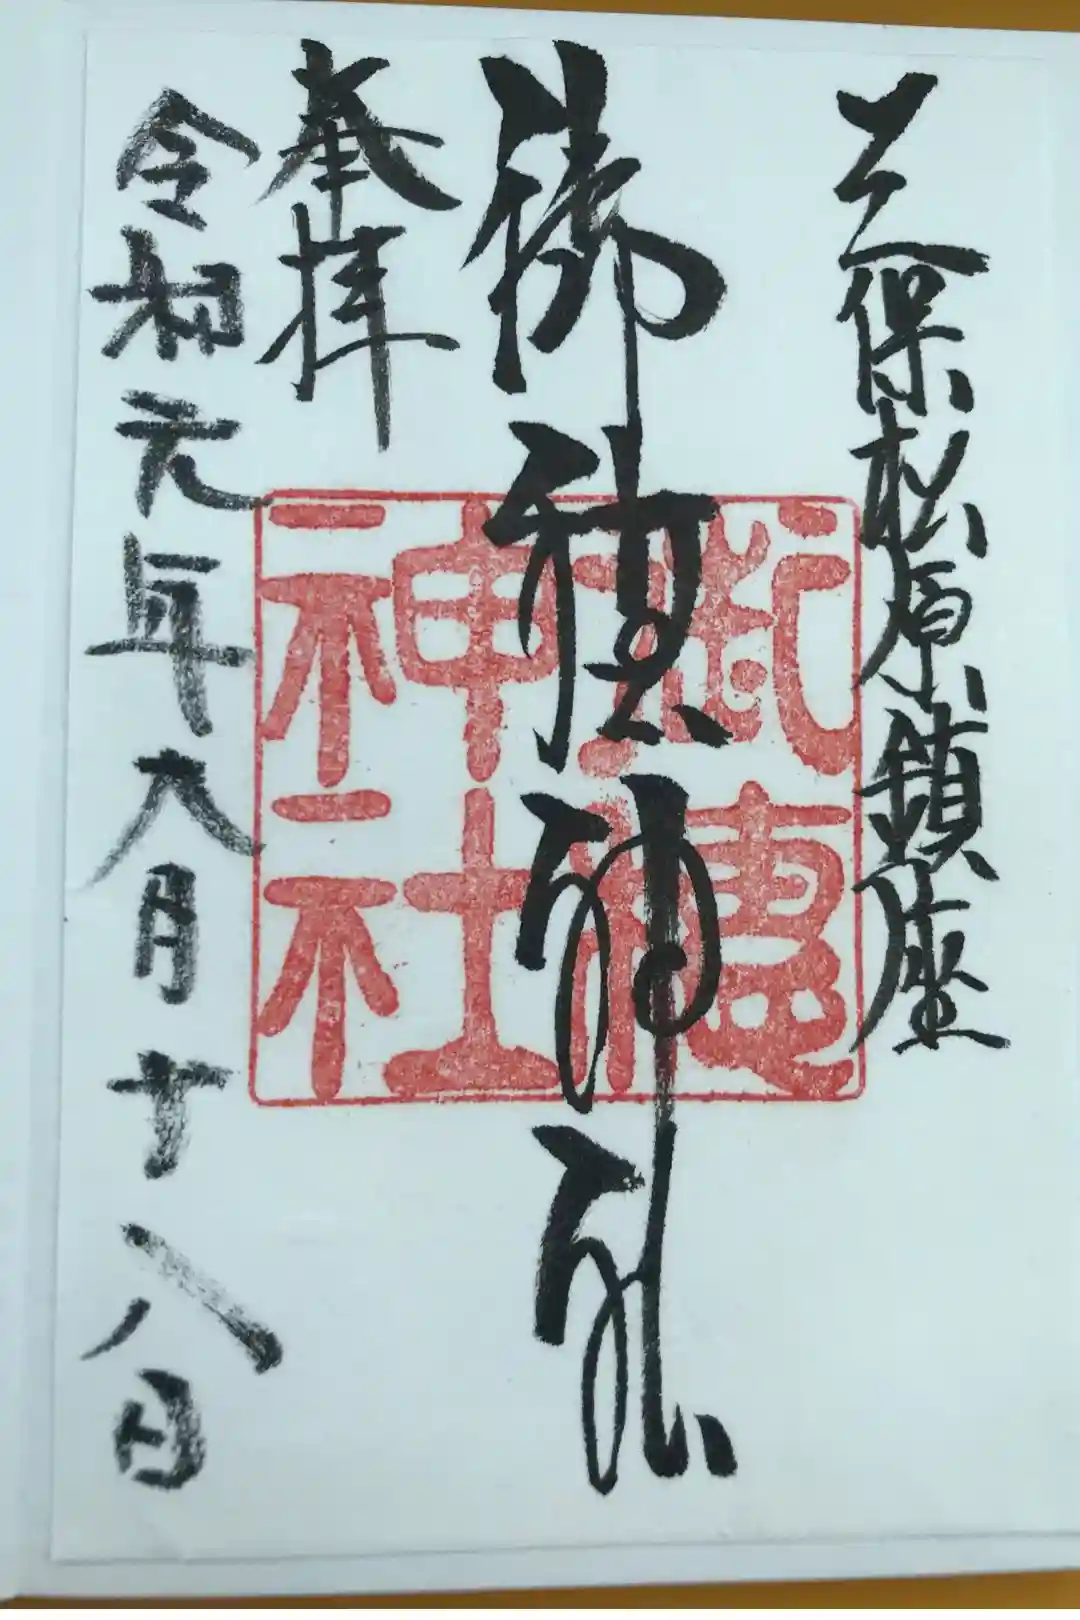 三保松原鎮座
御穂神社
奉拝
令和元年六月十八日
御穂
神社